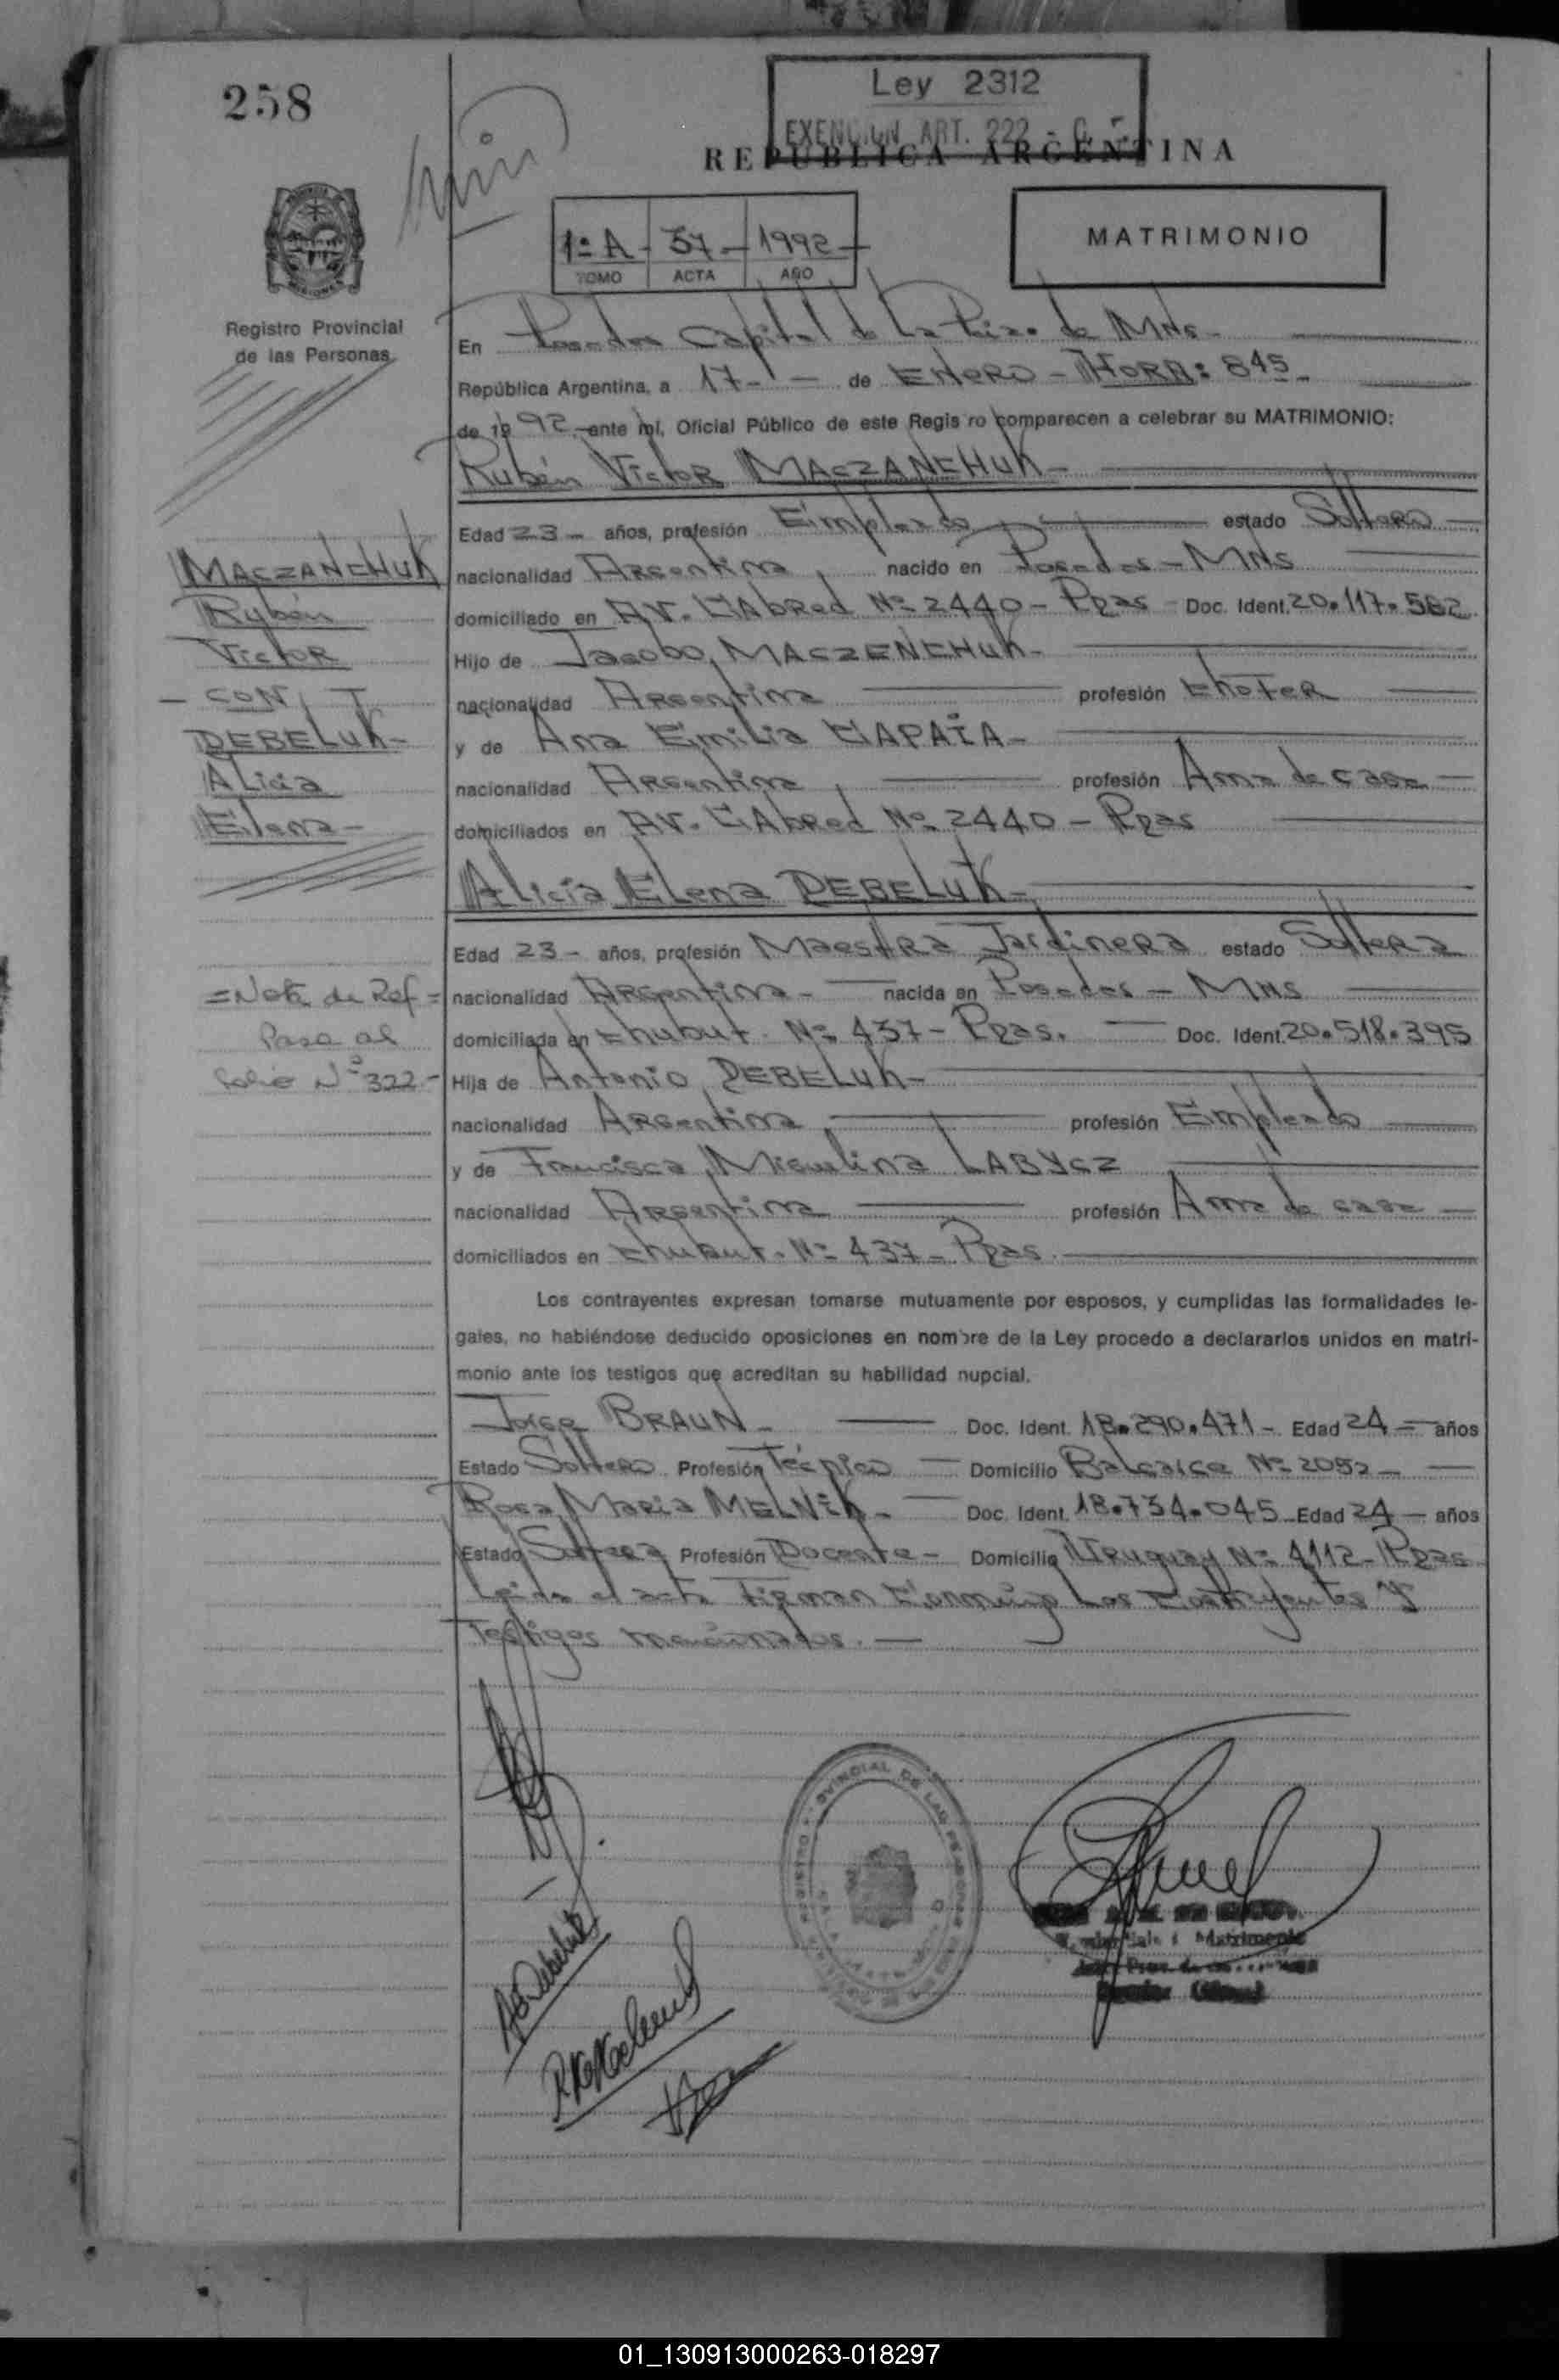 258
Ley 2312
EXENCION ART. 222 -
REPUBLICA ARGENTINA
1º A - 37 - 1992 -
TOMO ACTA AÑO
MATRIMONIO
Registro Provincial
de las Personas
En Posadas Capital de La Pcia. de Mns -
República Argentina, a 17 - de Enero - HORA: 8 45 -
de 1992 - ante mí, Oficial Público de este Registro comparecen a celebrar su MATRIMONIO:
Rubén Victor MACZANCHUK -
Edad 23 - años, profesión Empleado estado Soltero
nacionalidad Argentina, nacido en Posadas - MNS
domiciliado en AV. CAbRed Nº 2440 - Pgas - Doc. Ident. 20.117.562
Hijo de Jacobo MACZENCHUK -
nacionalidad Argentina profesión Chofer
y de Ana Emilia
nacionalidad Argentina, profesión Ama de casa
domiciliados en AV. CAbRed Nº 2440 - Pgas
Alicia Elena DEBELUK -
Edad 23 - años, profesión Maestra Jardinera estado Soltera
nacionalidad Argentina - nacida en Posadas - MNS
domiciliada en Chubut. Nº 437 - Pgas. Doc. Ident. 20.518.395
Hija de Antonio DEBELUK -
nacionalidad Argentina, profesión Empleado
y de Francisca Miguelina LABYCZ
nacionalidad Argentina profesión Ama de casa
domiciliados en Chubut. Nº 437 - Pgas.
Los contrayentes expresan tomarse mutuamente por esposos, y cumplidas las formalidades le-
gales, no habiéndose deducido oposiciones en nombre de la Ley procedo a declararlos unidos en matri-
monio ante los testigos que acreditan su habilidad nupcial.
Jorge BRAUN - Doc. Ident. 18.290.471 - Edad 24 - años
Estado Soltero Profesión Técnico Domicilio Balcarce Nº 2052 -
Rosa Maria MELNIK - Doc. Ident. 18.734.045 Edad 24 - años
Estado Soltera Profesión Docente - Domicilio Uruguay Nº 4112 - Pgas
Leida el acta Firman Conmigo Los Contrayentes y
Testigos mencionados. -
MACZANCHUK
Rubén
Victor
- CON
DEBELUK -
Alicia
Elena -
= Nota de Ref =
Pasa al
folio Nº 322 -
REGISTRO PROVINCIAL DE LAS PERSONAS
Matrimonio
01_130913000263-018297